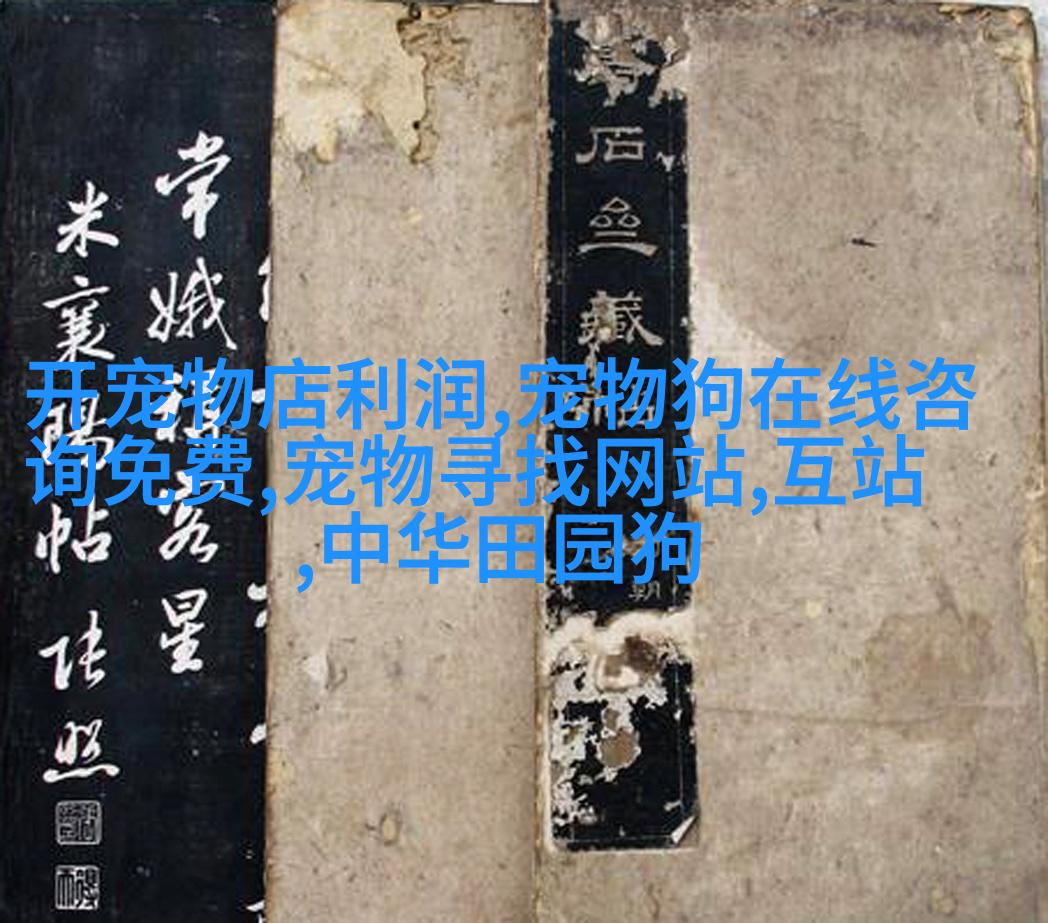 开宠物店利润,宠物狗在线咨
询免费,宠物寻找网站,互站
,中华田园狗
常娥客星
米襄陽帖 張照
石藏
朝